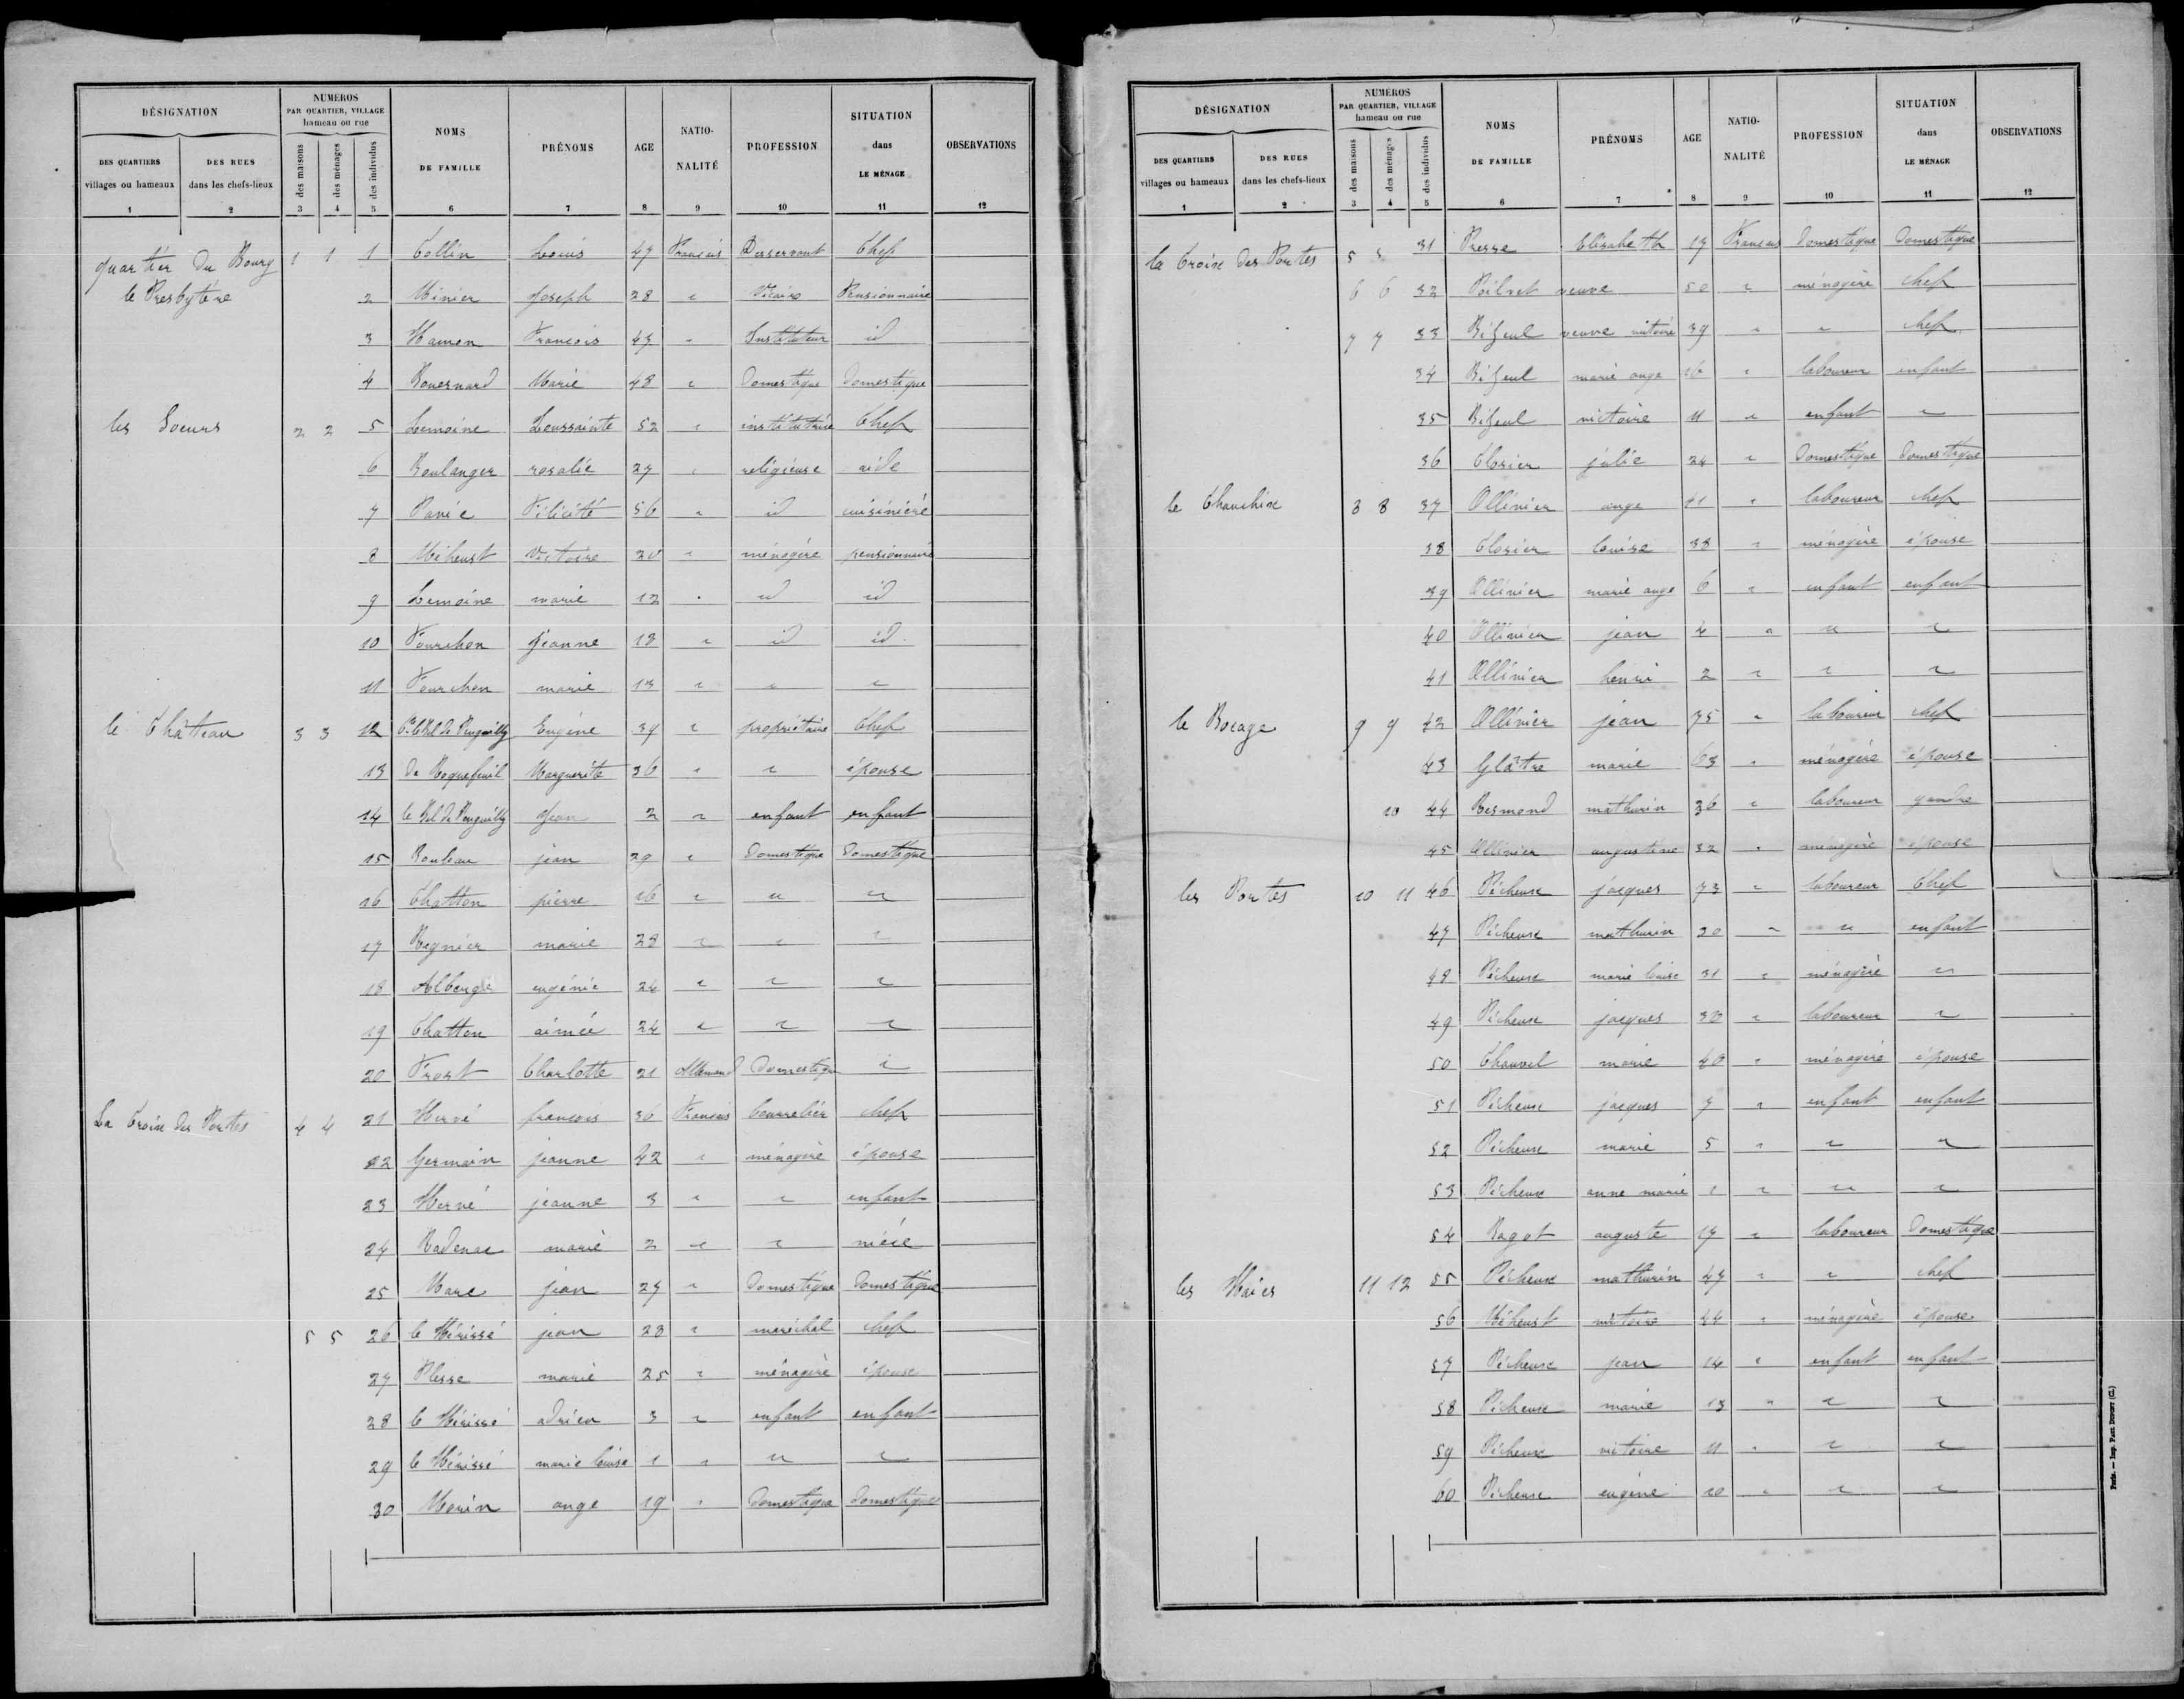 DÉSIGNATION
NUMÉROS PAR QUARTIER, VILLAGE hameau ou rue
NOMS DE FAMILLE
PRÉNOMS
AGE
NATIO-NALITÉ
PROFESSION
SITUATION dans LE MÉNAGE
OBSERVATIONS
DES QUARTIERS villages ou hameaux
DES RUES dans les chefs-lieux
des maisons
des ménages
des individus
1 2 3 4 5 6 7 8 9 10 11 12
quartier du Bourg 1 1 1 Collin Louis 47 Français Desservant Chef
le Presbytère 2 Minier Joseph 28 " Vicaire Pensionnaire
3 Hamon François 47 " Instituteur id
4 Rouesnard Marie 48 " Domestique Domestique
les Soeurs 2 2 5 Lemoine Toussainte 52 " institutrice Chef
6 Boulanger rosalie 27 " religieuse aide
7 Pavie Félicité 56 " id cuisinière
8 Méheust Victoire 20 " ménagère pensionnaire
9 Lemoine marie 12 " id id
10 Fourchon Jeanne 13 " id id
11 Fourchon marie 13 " " "
le Château 3 3 12 Eugène 39 " propriétaire Chef
13 de Roquefeuil Marguerite 36 " " épouse
14 le Bel de Penguilly Jean 2 " enfant enfant
15 Bouleau jean 29 " Domestique Domestique
16 Chatton pierre 16 " " "
17 Regnier marie 28 " " "
18 eugénie 24 " " "
19 Chatton aimée 24 " " "
20 Frost Charlotte 21 Allemand Domestique "
La Croix des Portes 4 4 21 Hervé françois 36 Français bourrelier chef
22 Germain jeanne 42 " ménagère épouse
23 Hervé jeanne 3 " " enfant
24 Radenac marie 2 " " nièce
25 Marc jean 27 " Domestique Domestique
5 5 26 le Hérissé jean 28 " maréchal chef
27 Plesse marie 25 " ménagère épouse
28 le Hérissé adrien 3 " enfant enfant
29 le Hérissé marie louise 1 " " "
30 Morin ange 19 " Domestique Domestique
DÉSIGNATION
NUMÉROS PAR QUARTIER, VILLAGE hameau ou rue
NOMS DE FAMILLE
PRÉNOMS
AGE
NATIO-NALITÉ
PROFESSION
SITUATION dans LE MÉNAGE
OBSERVATIONS
DES QUARTIERS villages ou hameaux
DES RUES dans les chefs-lieux
des maisons
des ménages
des individus
1 2 3 4 5 6 7 8 9 10 11 12
la Croix des Portes 5 5 31 Elisabeth 17 Français Domestique Domestique
6 6 32 Poilvet veuve 50 " ménagère chef
7 7 33 Bifeul veuve victoire 39 " " chef
34 Bifeul marie ange 16 " laboureur enfant
35 Bifeul victoire 11 " enfant "
36 Closier julie 24 " Domestique Domestique
le Chauchix 8 8 37 Ollivier ange 41 " laboureur chef
38 Closier louise 38 " ménagère épouse
39 Ollivier marie ange 6 " enfant enfant
40 Ollivier jean 4 " " "
41 Ollivier henri 2 " " "
le Bocage 9 9 42 Ollivier jean 75 " laboureur chef
43 Glâtre marie 63 " ménagère épouse
10 44 Besmond mathurin 36 " laboureur gendre
45 Ollivier augustine 32 " ménagère épouse
les Portes 10 11 46 Pécheux jacques 73 " laboureur Chef
47 Pécheux mathurin 20 " " enfant
48 Pécheux marie louise 31 " ménagère "
49 Pécheux jacques " laboureur "
50 Chauvel marie 40 " ménagère épouse
51 Pécheux jacques 7 " enfant enfant
52 Pécheux marie 5 " " "
53 Pécheux anne marie 1 " " "
54 Ragot auguste 17 " laboureur Domestique
les Haies 11 12 55 Pécheux mathurin 47 " " chef
56 Méheust victoire 44 " ménagère épouse
57 Pécheux jean 14 " enfant enfant
58 Pécheux marie 13 " " "
59 Pécheux victoire 11 " " "
60 Pécheux eugène 10 " " "
Paris. — Imp. PAUL DUPONT (Cl.)